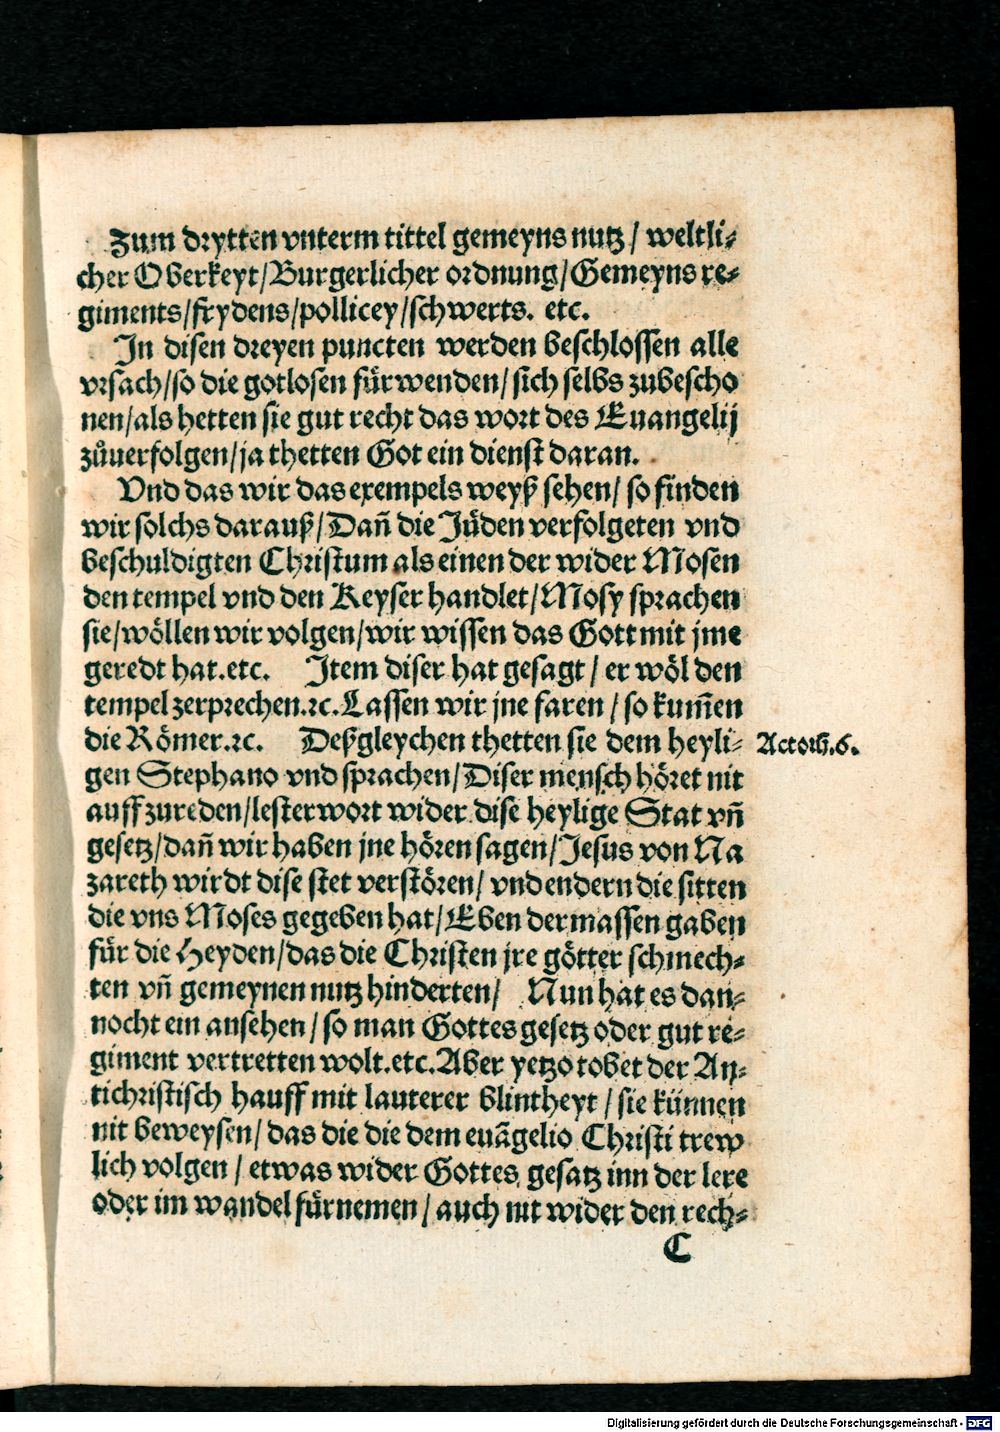 Zum drytten vnterm tittel gemeyns nutz / weltli⸗
cher Oberkeyt/Burgerlicher ordnung/Gemeyns re⸗
giments/frydens/pollicey/schwerts. etc.
In disen dreyen puncten werden beschlossen alle
vrsach/so die gotlosen fürwenden/sich selbs zubescho
nen/als hetten sie gut recht das wort des Euangelij
zůuerfolgen/ja thetten Got ein dienst daran.
Vnd das wir das exempels weyß sehen/ so finden
wir solchs darauß/Dañ die Jüden verfolgeten vnd
beschuldigten Christum als einen der wider Mosen
den tempel vnd den Keyser handlet/Mosy sprachen
sie/wöllen wir volgen/wir wissen das Gott mit jme
geredt hat.etc. Item diser hat gesagt / er wöl den
tempel zerprechen.ꝛc.Lassen wir jne faren / so kum̃en
die Römer.ꝛc. Deßgleychen thetten sie dem heyli⸗
Actorũ.6.
gen Stephano vnd sprachen/Diser mensch höret nit
auff zureden/lesterwort wider dise heylige Stat vñ
gesetz/dañ wir haben jne hören sagen/Jesus von Na
zareth wirdt dise stet verstören/ vnd endern die sitten
die vns Moses gegeben hat/Eben der massen gaben
für die Heyden/das die Christen jre götter schmech⸗
ten vñ gemeynen nutz hinderten/ Nun hat es dan⸗
nocht ein ansehen / so man Gottes gesetz oder gut re⸗
giment vertretten wolt.etc.Aber yetzo tobet der An⸗
tichristisch hauff mit lauterer blintheyt / sie künnen
nit beweysen/ das die die dem euãgelio Christi trew
lich volgen / etwas wider Gottes gesatz inn der lere
oder im wandel fürnemen / auch nit wider den rech⸗
C
Digitalisierung gefördert durch die Deutsche Forschungsgemeinschaft - DFG